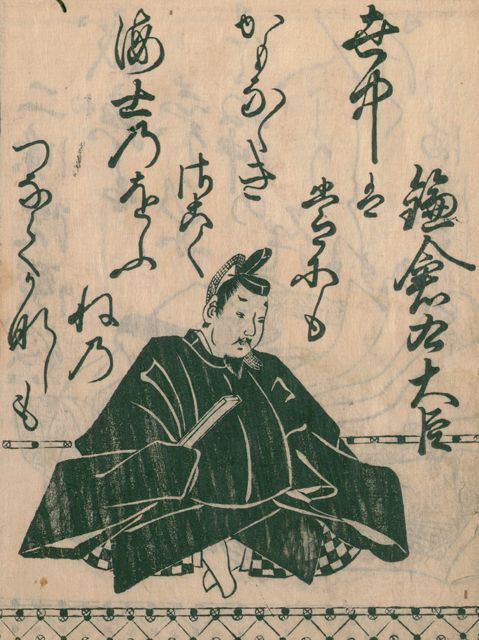 鎌倉右大臣
世中は
常にも
かもなゝき
さこく
海士乃をふ
ね乃
つなてかなしも